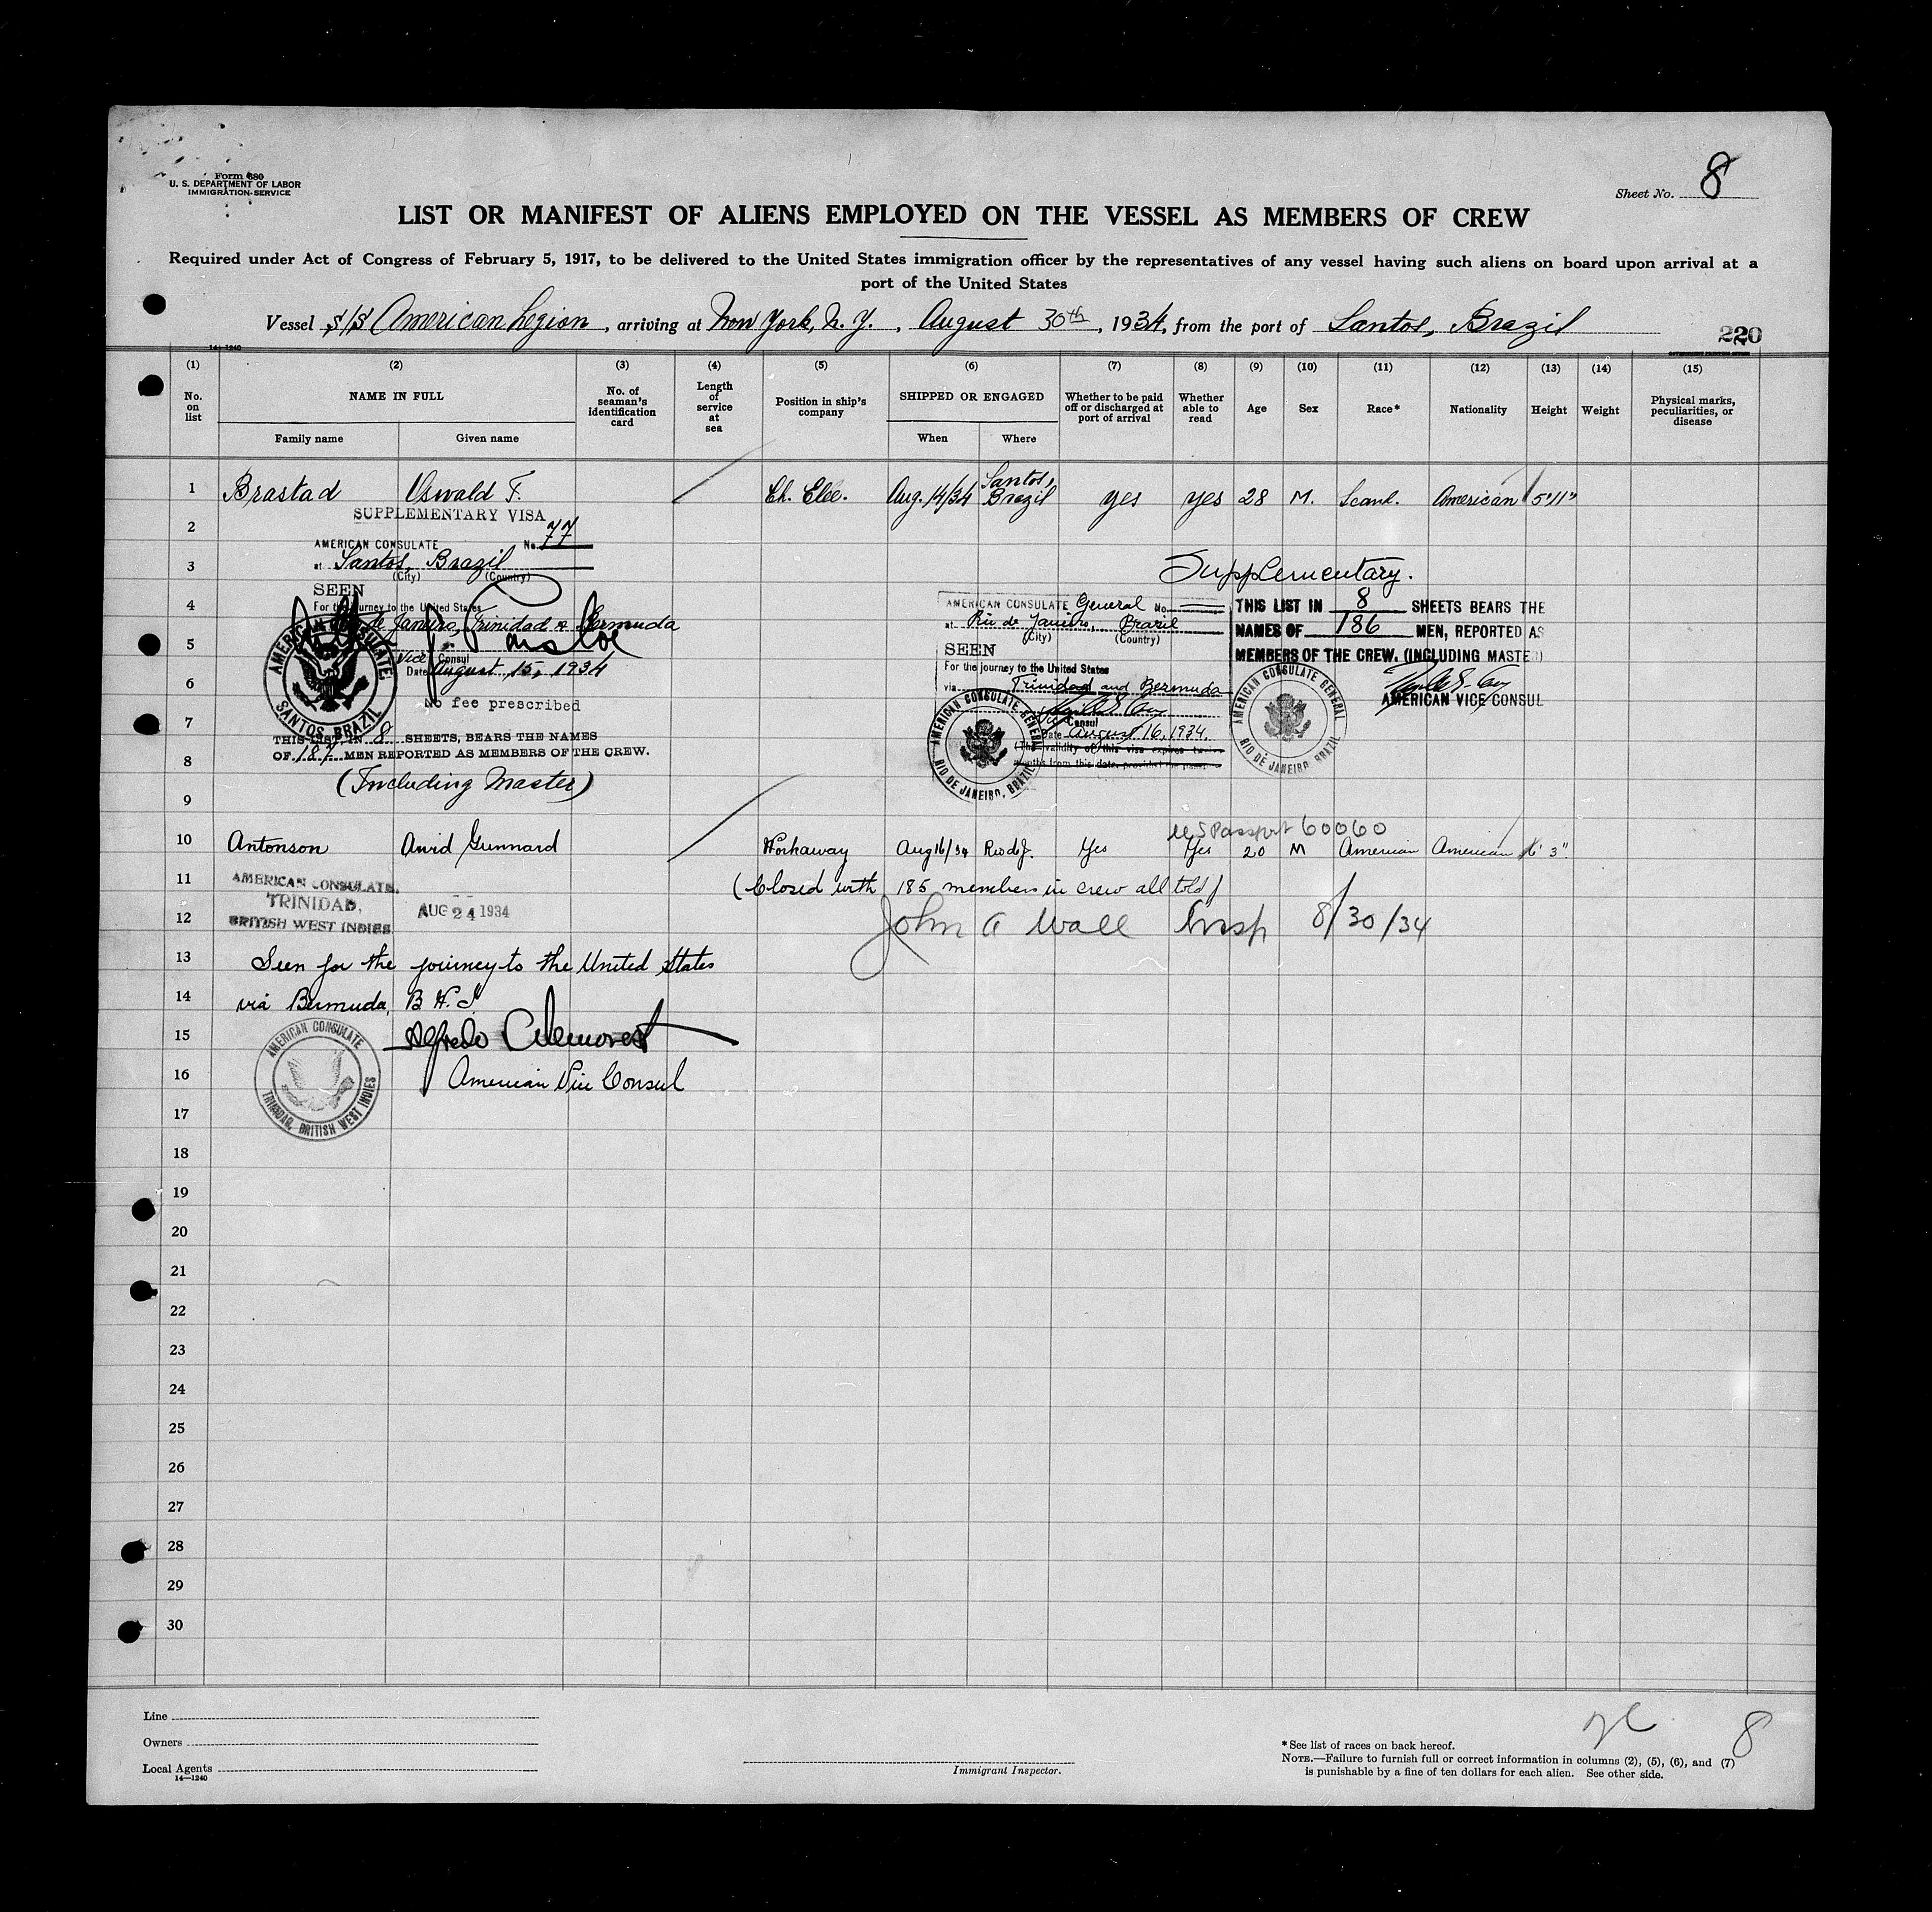 Form 680
U. S. DEPARTMENT OF LABOR
IMMIGRATION SERVICE
Sheet No. 8
LIST OR MANIFEST OF ALIENS EMPLOYED ON THE VESSEL AS MEMBERS OF CREW
Required under Act of Congress of February 5, 1917, to be delivered to the United States immigration officer by the representatives of any vessel having such aliens on board upon arrival at a
port of the United States
Vessel S/S American Legion, arriving at New York, N. Y., August 30th, 1934, from the port of Santos, Brazil
220
14—1240
GOVERNMENT PRINTING OFFICE
(1) (2) (3) (4) (5) (6) (7) (8) (9) (10) (11) (12) (13) (14) (15)
No. on list
NAME IN FULL
Family name Given name
No. of seaman's identification card
Length of service at sea
Position in ship's company
SHIPPED OR ENGAGED
When Where
Whether to be paid off or discharged at port of arrival
Whether able to read
Age
Sex
Race*
Nationality
Height
Weight
Physical marks, peculiarities, or disease
1 Brastad Oswald F. Ch. Elec. Aug. 14/34 Santos, Brazil yes yes 28 M. Scand. American 5'11"
SUPPLEMENTARY VISA
2
AMERICAN CONSULATE No. 77
3
at Santos, Brazil
(City) (Country)
SEEN
4
For the journey to the United States
de Janeiro, Trinidad & Bermuda
5
Vice Consul
Date August 15, 1934
6
No fee prescribed
AMERICAN CONSULATE
SANTOS, BRAZIL
7
THIS LIST, IN 8 SHEETS, BEARS THE NAMES
OF 187 MEN REPORTED AS MEMBERS OF THE CREW.
8
(Including Master)
9
Supplementary.
AMERICAN CONSULATE General No.
at Rio de Janeiro, Brazil
(City) (Country)
SEEN
For the journey to the United States
via Trinidad and Bermuda
Vice Consul
Date August 16, 1934.
(The validity of this visa expires twelve
months from this date, provided the
AMERICAN CONSULATE GENERAL
RIO DE JANEIRO, BRAZIL
THIS LIST IN 8 SHEETS BEARS THE
NAMES OF 186 MEN, REPORTED AS
MEMBERS OF THE CREW. (INCLUDING MASTER)
AMERICAN VICE CONSUL
AMERICAN CONSULATE GENERAL
RIO DE JANEIRO, BRAZIL
US Passport 60060
10 Antonson Arvid Gunnard Workaway Aug 16/34 Rio de J. Yes Yes 20 M American American 6' 3"
11 (Closed with 185 members in crew all told)
AMERICAN CONSULATE,
TRINIDAD,
BRITISH WEST INDIES
AUG 24 1934
12 John A Wall Insp 8/30/34
13 Seen for the journey to the United States
14 via Bermuda, B. W. I.
15
16 American Vice Consul
AMERICAN CONSULATE
TRINIDAD, BRITISH WEST INDIES
17
18
19
20
21
22
23
24
25
26
27
28
29
30
Line
Owners
Local Agents
14—1240
Immigrant Inspector.
*See list of races on back hereof.
NOTE.—Failure to furnish full or correct information in columns (2), (5), (6), and (7)
is punishable by a fine of ten dollars for each alien. See other side.
8